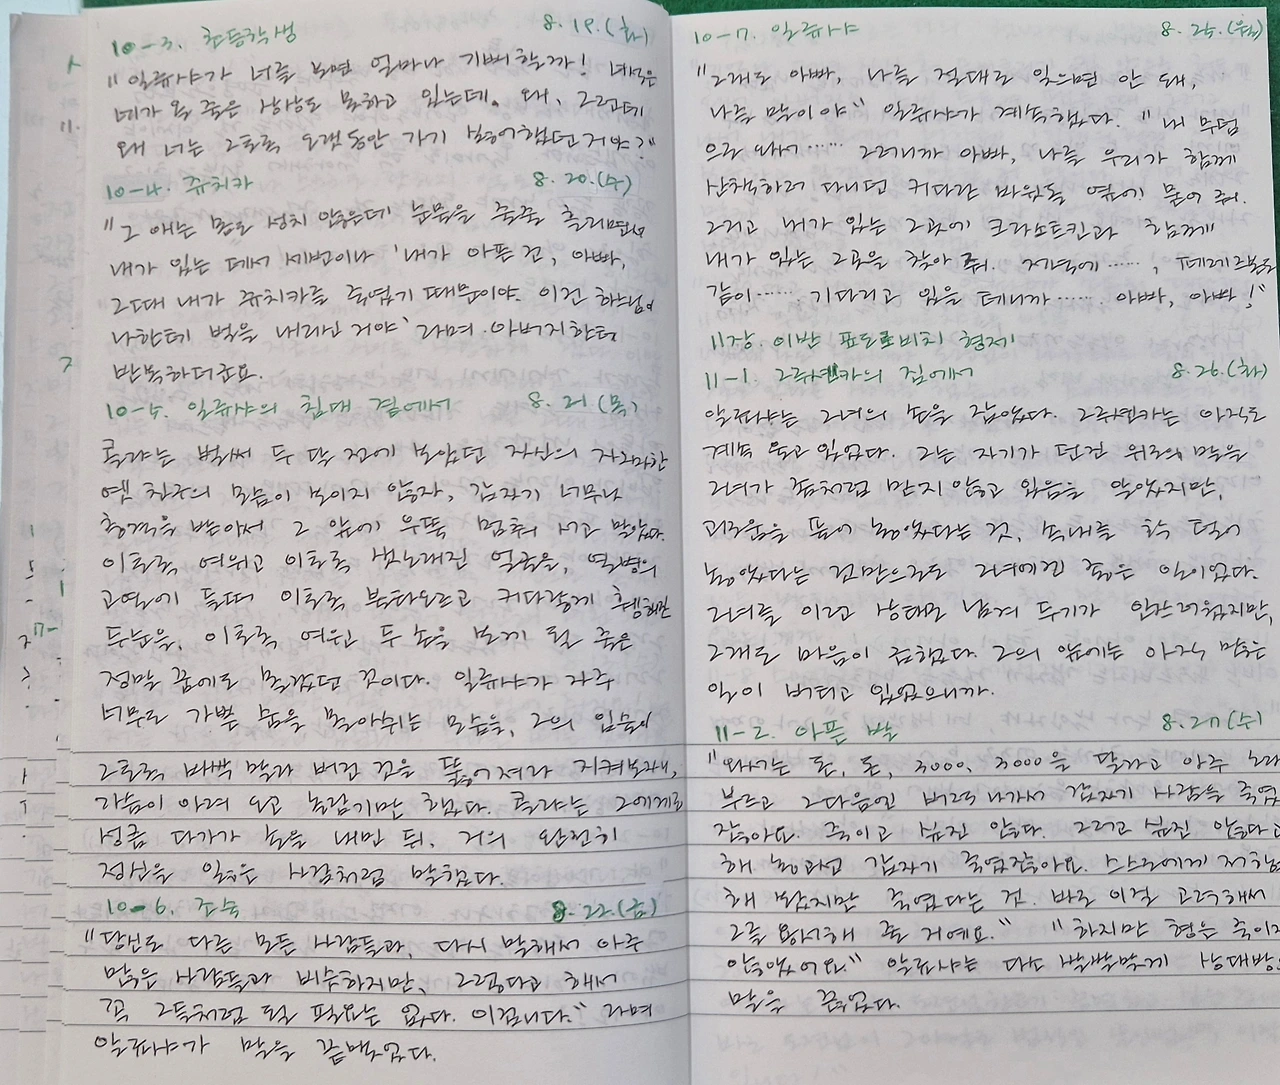 10-3. 초등학생 8.19.(화)
"일류샤가 너를 보면 얼마나 기뻐할까! 녀석은
네가 올 줄은 상상도 못하고 있는데. 왜, 그런데
왜 너는 그토록 오랫동안 가기 싫어했던 거야?"
10-4. 쥬치카 8.20.(수)
"그 애는 몸도 성치 않은데 눈물을 줄줄 흘리면서
내가 있는 데서 세번이나 '내가 아픈 건, 아빠,
그때 내가 쥬치카를 죽였기 때문이야. 이건 하느님이
나한테 벌을 내리신 거야' 라며 아버지한테
반복하더군요.
10-5. 일류샤의 침대 곁에서 8.21(목)
콜랴는 벌써 두 달 전에 보았던 자신의 자그마한
옛 친구의 모습이 보이지 않자, 갑자기 너무나
충격을 받아서 그 앞에 우뚝 멈춰 서고 말았다.
이토록 여위고 이토록 샛노래진 얼굴을, 열병의
고열에 들떠 이토록 불타오르고 커다랗게 휑해진
두눈을, 이토록 여윈 두 손을 보게 될 줄은
정말 꿈에도 몰랐던 것이다. 일류샤가 자주
너무도 가쁜 숨을 몰아쉬는 모습을, 그의 입술이
그토록 바싹 말라 버린 것을 뚫어져라 지켜보자니,
가슴이 아려 오고 놀랍기만 했다. 콜랴는 그에게로
성큼 다가가 손을 내민 뒤, 거의 완전히
정신을 잃은 사람처럼 말했다.
10-6. 조숙 8.22.(금)
"당신도 다른 모든 사람들과, 다시 말해서 아주
많은 사람들과 비슷하지만, 그렇다고 해서
꼭 그들처럼 될 필요는 없다. 이겁니다." 라며
알료샤가 말을 끝맺었다.
10-7. 일류샤 8.25.(월)
"그래도 아빠, 나를 절대로 잊으면 안 돼,
나를 말이야" 일류샤가 계속했다. "내 무덤
으로 와서…… 그러니까 아빠, 나를 우리가 함께
산책하러 다니던 커다란 바위돌 옆에 묻어 줘.
그리고 내가 있는 그곳에 크라소트킨과 함께
내가 있는 그곳을 찾아 줘. 저녁에……, 페레즈본도
같이…… 기다리고 있을 테니까…… 아빠, 아빠!"
11장. 이반 표도르비치 형제
11-1. 그루센카의 집에서 8.26.(화)
알료샤는 그녀의 손을 잡았다. 그루센카는 아직도
계속 울고 있었다. 그는 자기가 던진 위로의 말을
그녀가 좀처럼 믿지 않고 있음을 알았지만,
괴로움을 풀어 놓았다는 것, 속내를 확 털어
놓았다는 것만으로도 그녀에겐 좋은 일이었다.
그녀를 이런 상태로 남겨 두기가 안쓰러웠지만,
그래도 마음이 급했다. 그의 앞에는 아직 많은
일이 버티고 있었으니까.
11-2. 아픈 발 8.27(수)
"와서는 돈, 돈, 3000, 3000을 달라고 아주 노래
부르고 그다음엔 버럭 나가서 갑자기 사람을 죽였
잖아요. 죽이고 싶진 않다. 그리고 싶진 않다고
해 놓고선 갑자기 죽였잖아요. 스스로에게 저항
해 봤지만 죽였다는 건. 바로 이걸 고려해서
그를 용서해 줄 거예요." "하지만 형은 죽이지
않았어요" 알료샤는 다소 발빨맞게 상대방의
말을 끊었다.